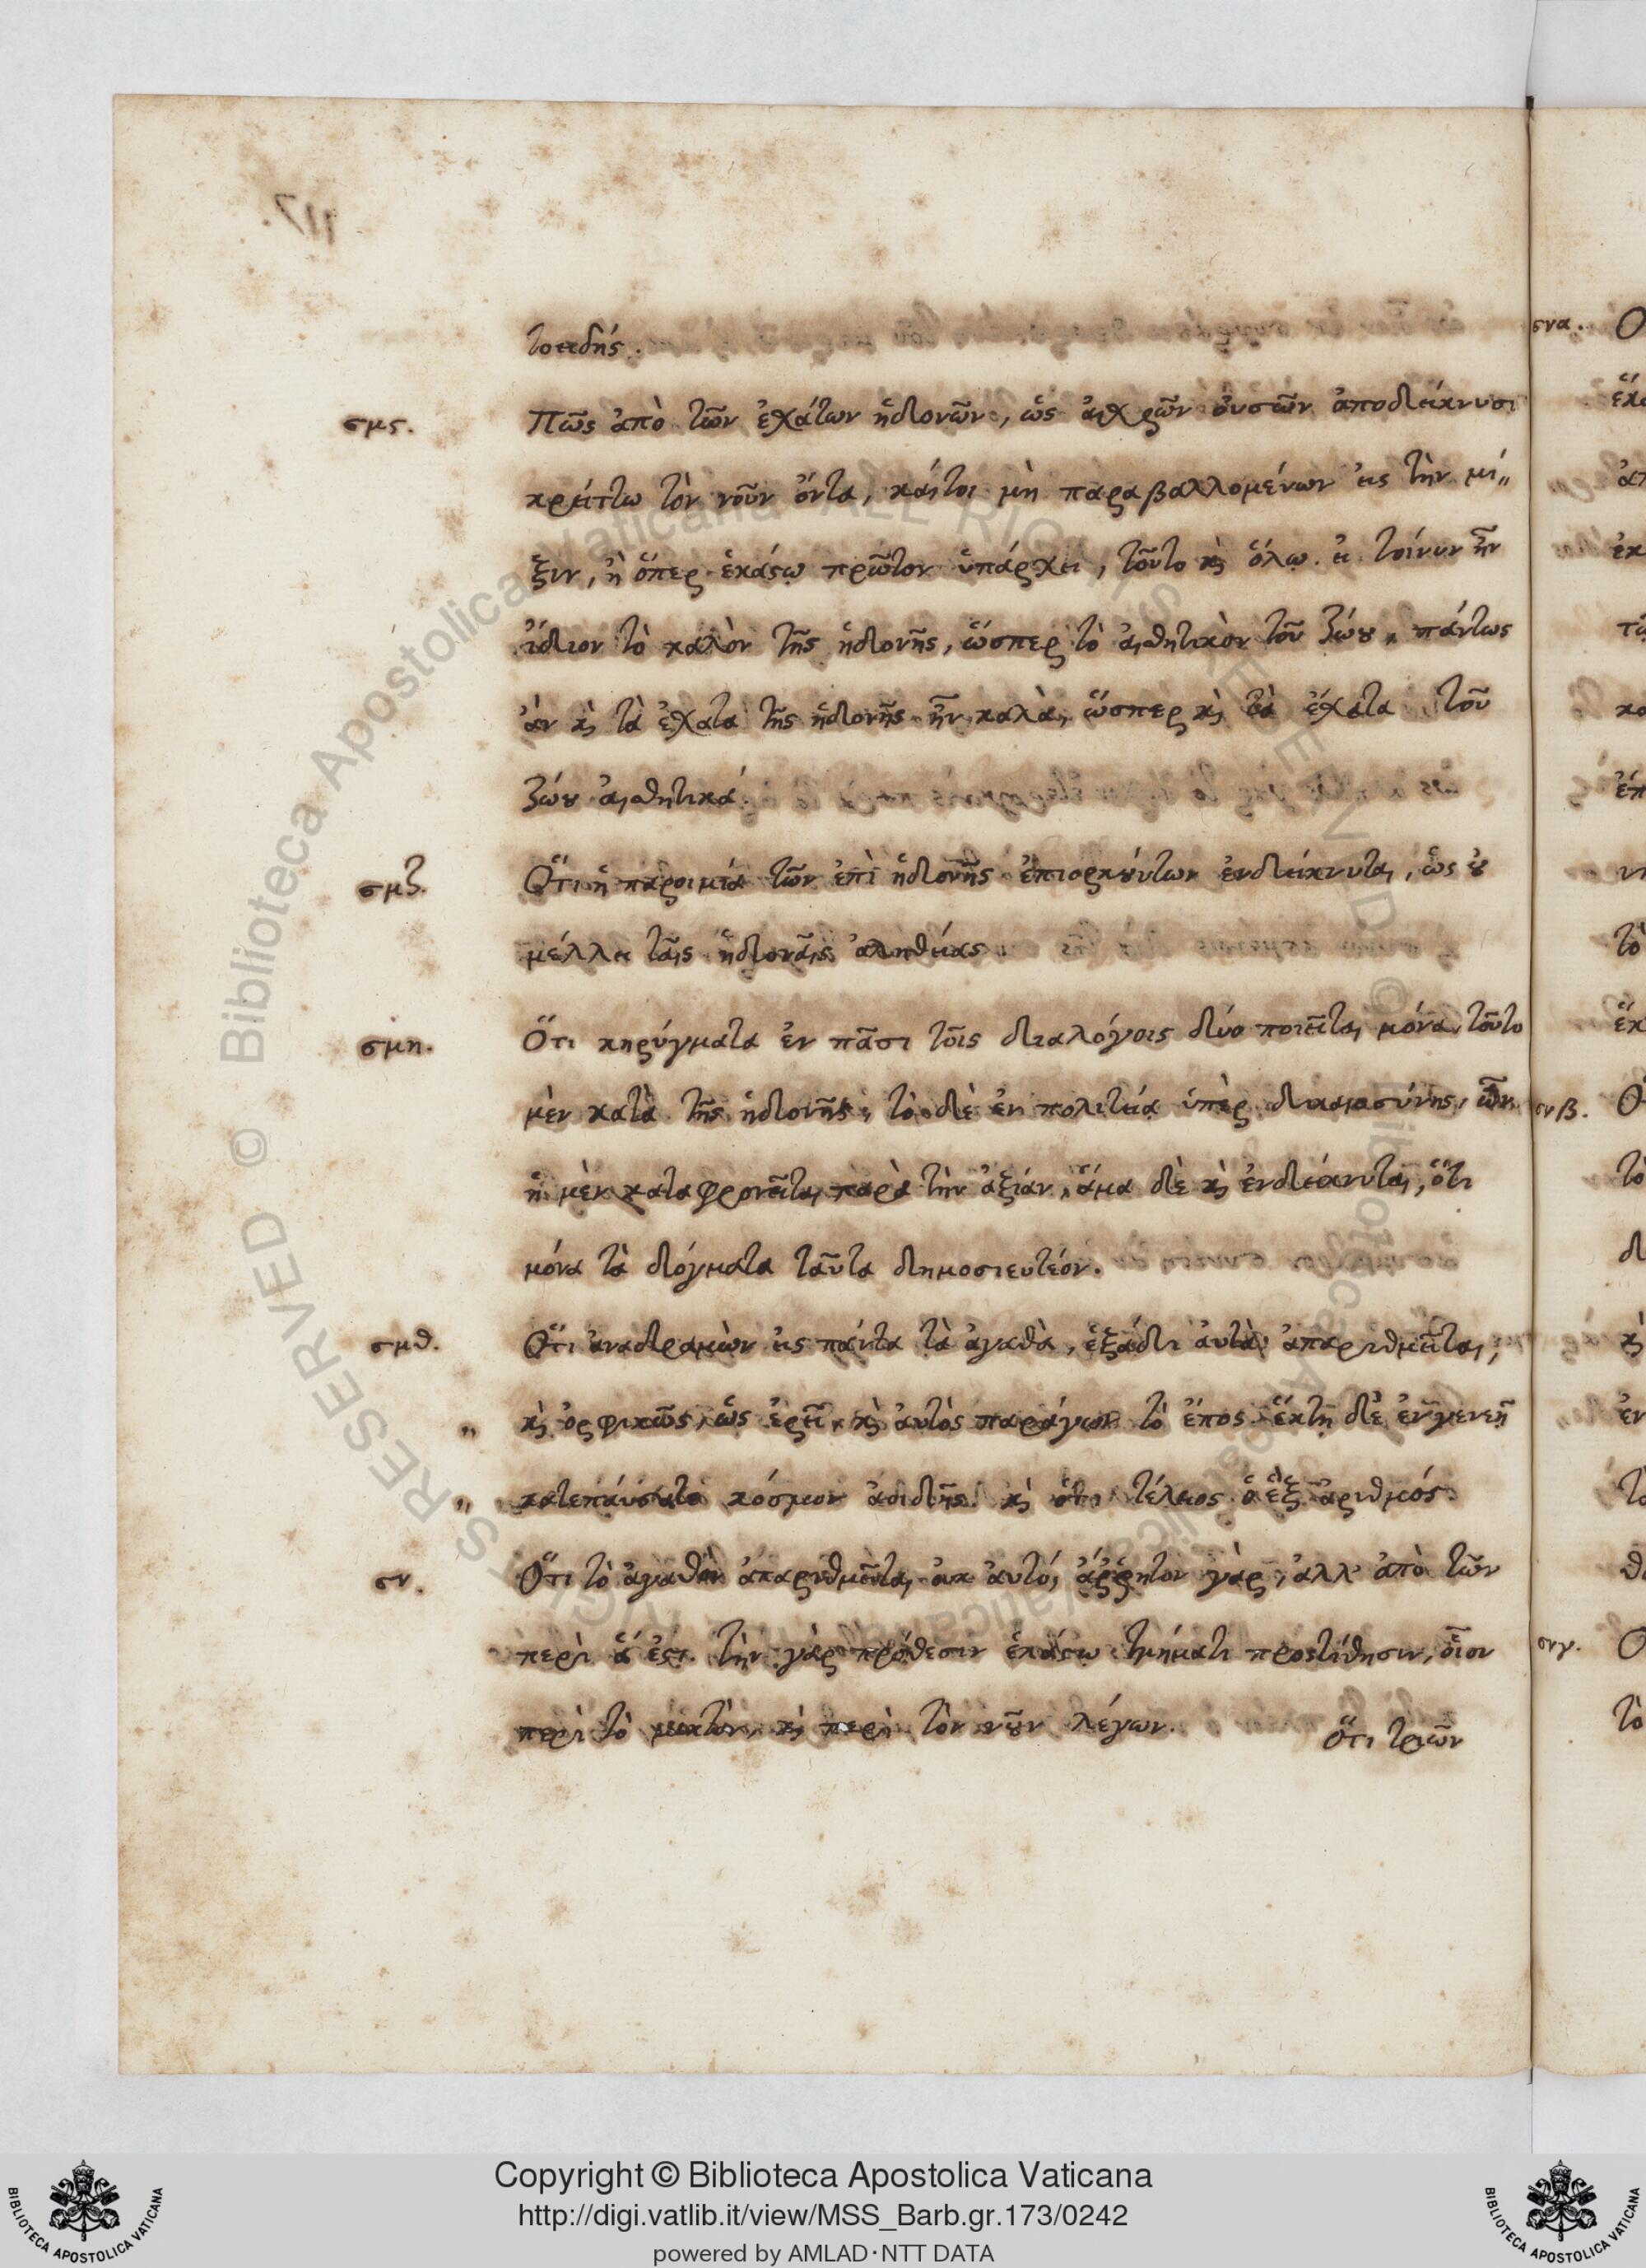 τοειδής.
σμς. Πῶς ἀπὸ τῶν ἐσχάτων ἡδονῶν, ὡς αἰσχρῶν οὐσῶν ἀποδείκνυσι
κρείττω τὸν νοῦν ὄντα, καίτοι μὴ παραβαλλομένων εἰς τὴν μί„
ξιν, ἢ ὅπερ ἑκάστῳ πρῶτον ὑπάρχει, τοῦτο καὶ ὅλῳ. εἰ τοίνυν ἦν
ἴδιον τὸ καλὸν τῆς ἡδονῆς, ὥσπερ τὸ αἰσθητικὸν τοῦ ζώου, πάντως
ἂν καὶ τὰ ἔσχατα τῆς ἡδονῆς ἦν καλὰ, ὥσπερ καὶ τὰ ἔσχατα τοῦ
ζώου αἰσθητικά.
σμζ. Ὅτι ἡ παροιμία τῶν ἐπὶ ἡδονῆς ἐπιορκούντων ἐνδείκνυται, ὡς οὐ
μέλλει ταῖς ἡδοναῖς ἀληθείας.
σμη. Ὅτι κηρύγματα ἐν πᾶσι τοῖς διαλόγοις δύο ποιεῖται μόνα, τοῦτο
μὲν κατὰ τῆς ἡδονῆς, τὸ δὲ ἐν πολιτείᾳ ὑπὲρ δικαιοσύνης, ὧν
ἡ μὲν καταφρονεῖται παρὰ τὴν ἀξίαν, ἅμα δὲ καὶ ἐνδείκνυται, ὅτι
μόνα τὰ δόγματα ταῦτα δημοσιευτέον.
σμθ. Ὅτι ἀναδραμὼν εἰς πάντα τὰ ἀγαθὰ, ἑξάδι αὐτὰ ἀπαριθμεῖται,
„ καὶ ὀρφικῶς, ὡς ἐρεῖ, καὶ αὐτὸς παράγων τὸ ἔπος. ἕκτῃ δὲ ἐν γενεῇ
„ κατεπαύσατε κόσμον ἀοιδῆς. καὶ ὅτι τέλειος ὁ ἓξ ἀριθμός.
σν. Ὅτι τὸ ἀγαθὸν ἀπαριθμεῖται οὐκ αὐτό, ἄῤῥητον γὰρ, ἀλλ' ἀπὸ τῶν
περὶ ἅ ἐστι. τὴν γὰρ πρόθεσιν ἑκάστῳ τμήματι προστίθησιν, οἷον
περὶ τὸ μικτὸν, καὶ περὶ τὸν νοῦν λέγων.
Ὅτι τριῶν
117.
σνα.
σνβ.
σνγ.
Copyright © Biblioteca Apostolica Vaticana
http://digi.vatlib.it/view/MSS_Barb.gr.173/0242
powered by AMLAD·NTT DATA
BIBLIOTECA APOSTOLICA VATICANA
BIBLIOTECA APOSTOLICA VATICANA